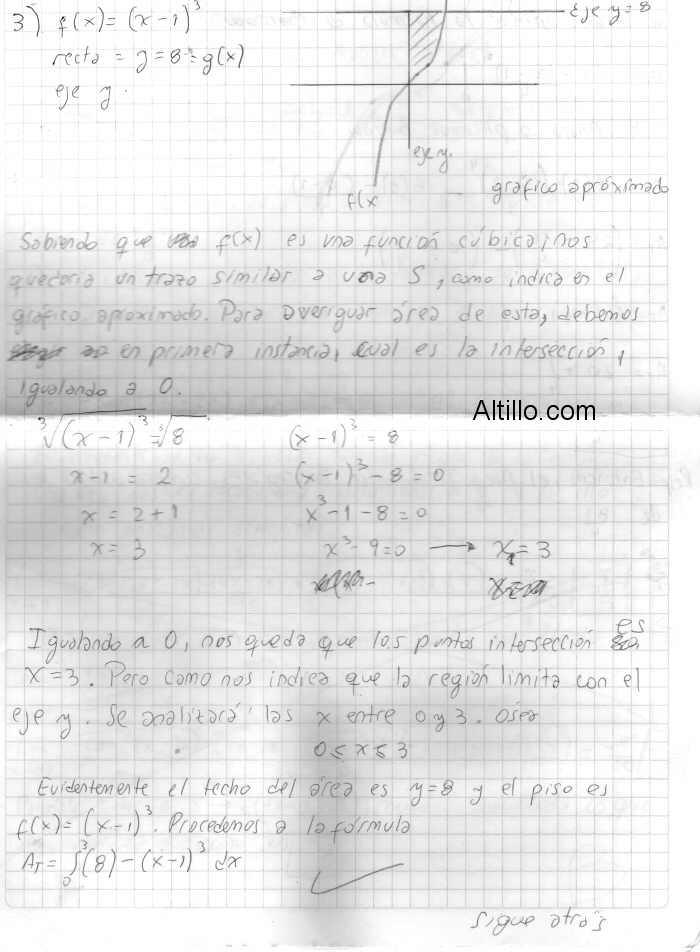 3) f(x) = (x-1)³
recta = y = 8 = g(x)
eje y.
Eje y=8
eje y.
f(x
gráfico apróximado
Sabiendo que f(x) es una función cúbica, nos
quedaria un trazo similar a una S, como indica en el
gráfico aproximado. Para averiguar área de esta, debemos
en primera instancia, cual es la intersección,
igualando a 0.
Altillo.com
∛(x-1)³ = ∛8
(x-1)³ = 8
x-1 = 2
(x-1)³ - 8 = 0
x = 2+1
x³ - 1 - 8 = 0
x = 3
x³ - 9 = 0 → x₁ = 3
Igualando a 0, nos queda que los puntos intersección es
x=3. Pero como nos indica que la región limita con el
eje y. Se analizará las x entre 0 y 3. Osea
0 ≤ x ≤ 3
Evidentemente el techo del área es y=8 y el piso es
f(x) = (x-1)³. Procedemos a la fórmula
A_T = ∫₀³ (8) - (x-1)³ dx
sigue atrás